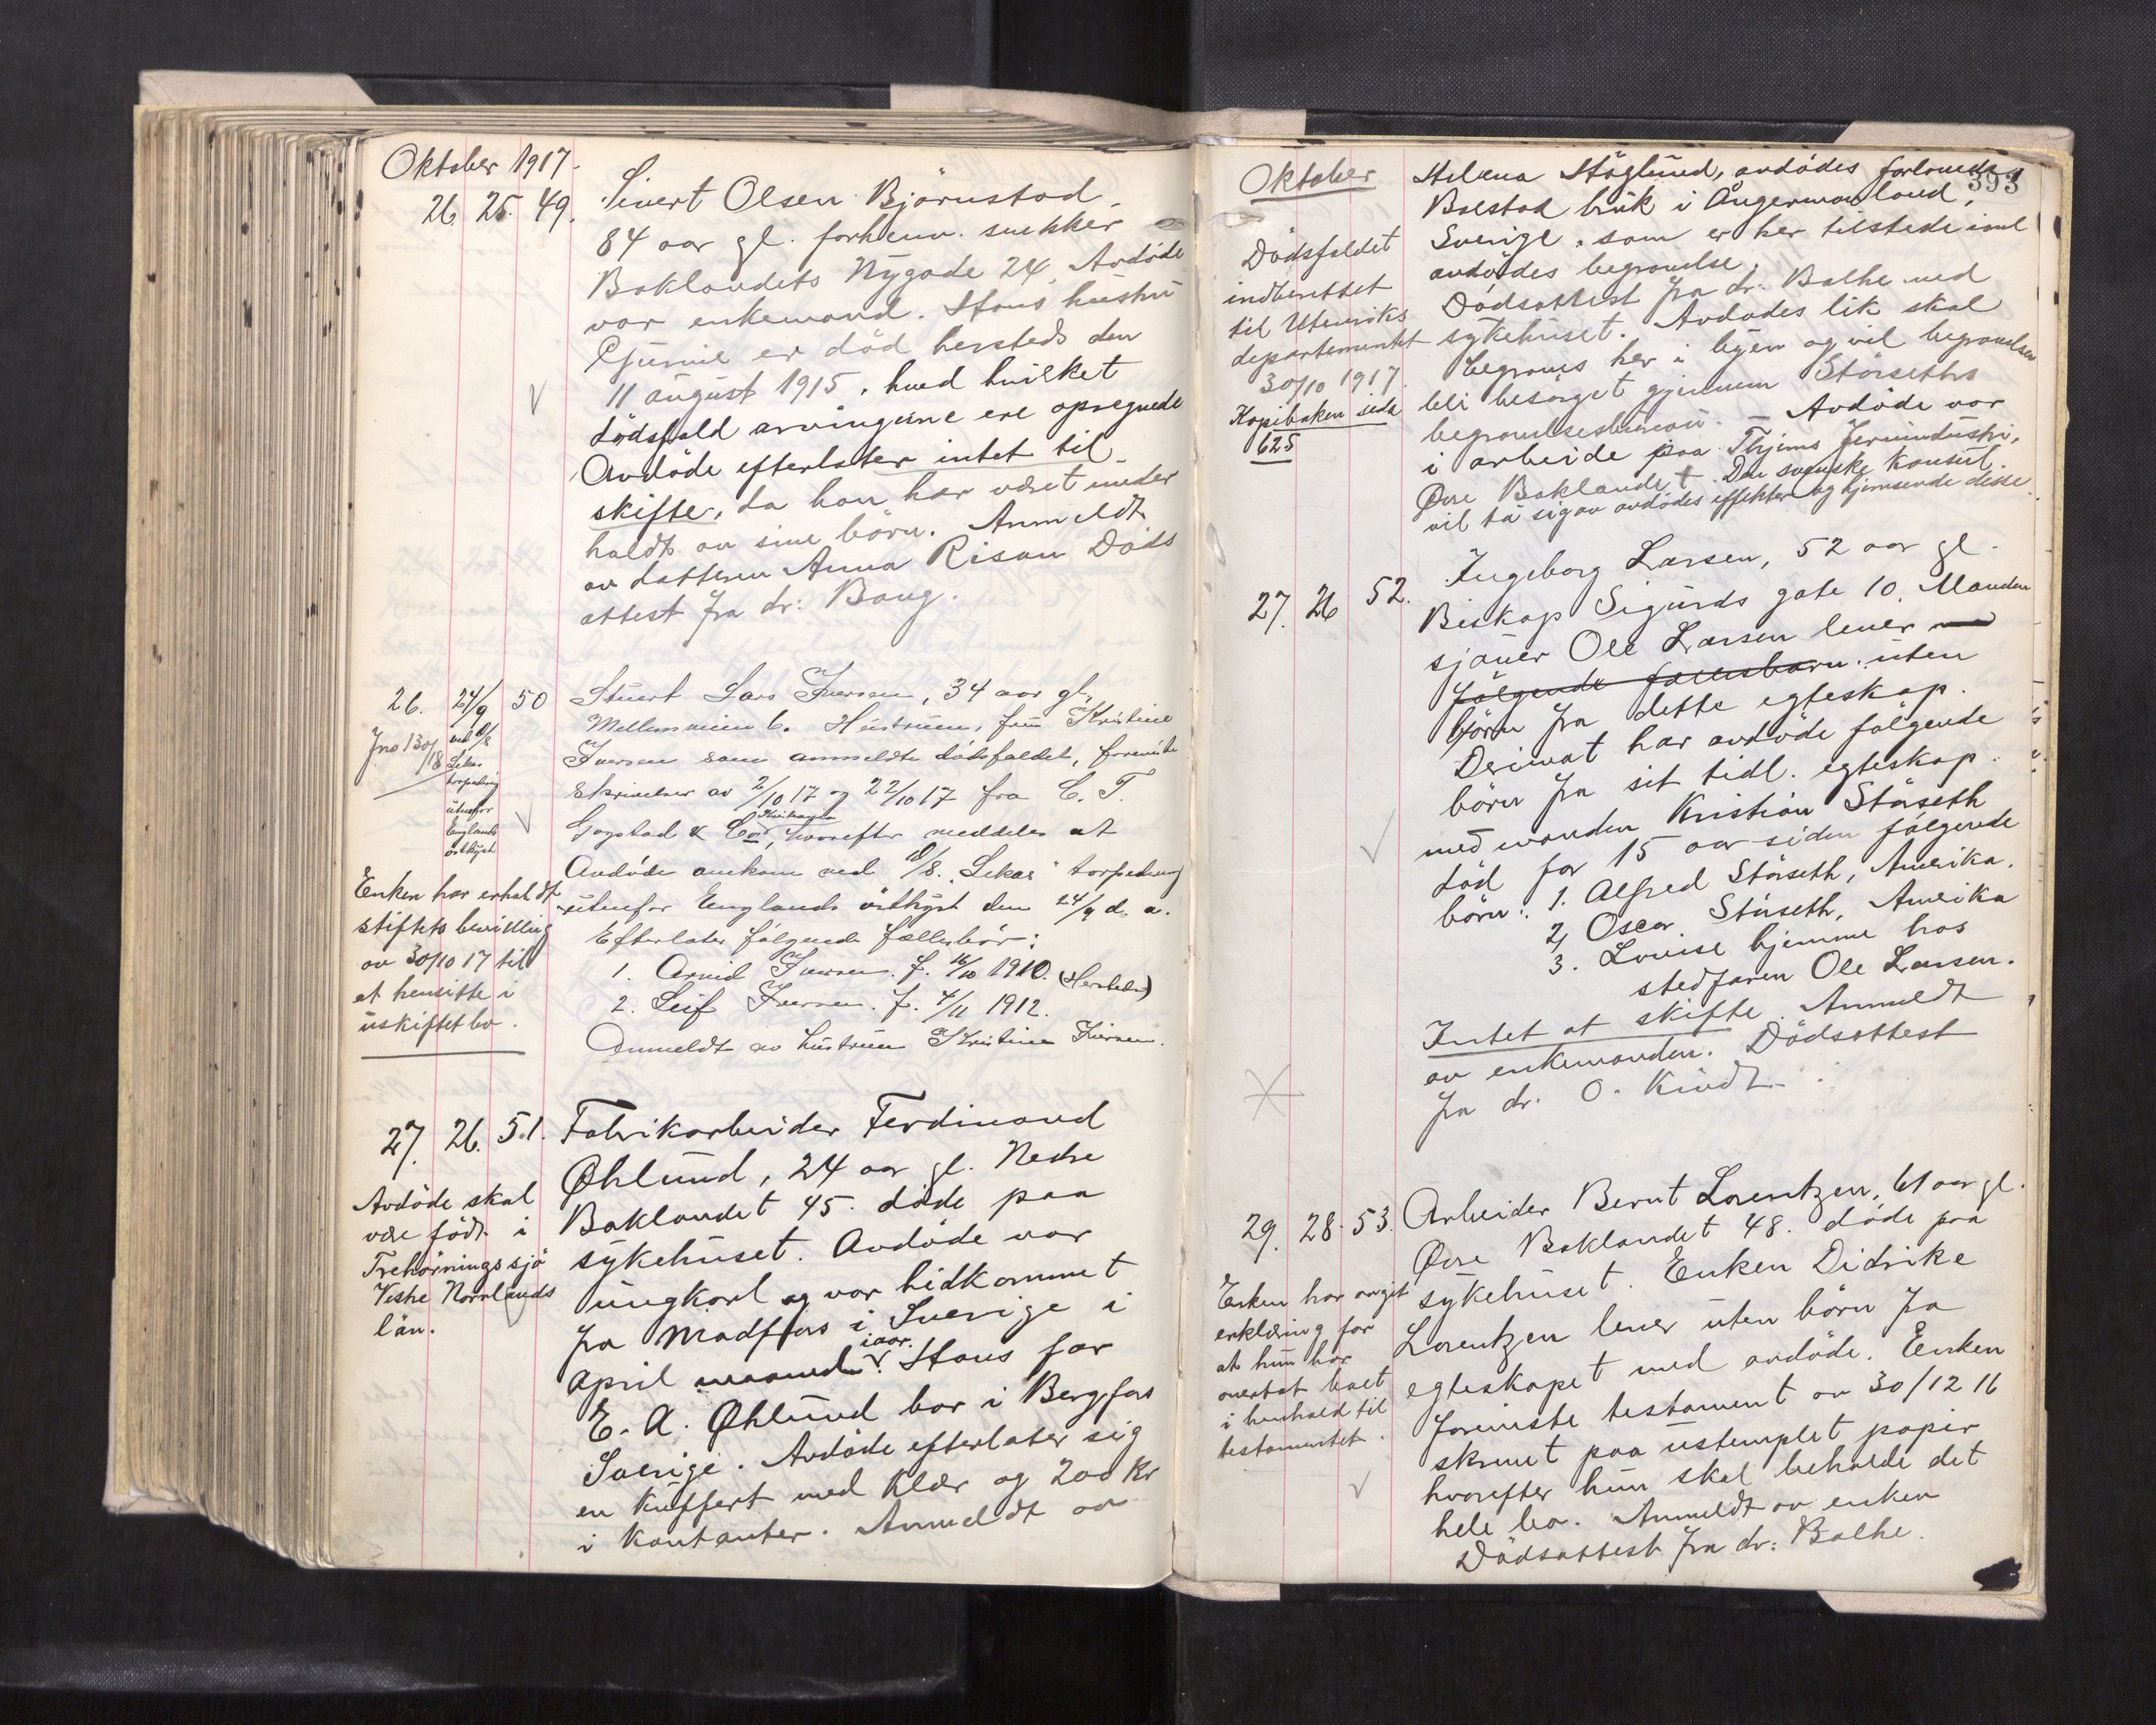 Oktober 1917.
26. 25. 49. Sivert Olsen Bjørnstad.
84 aar gl. forhenv. snekker
Baklandets Nygade 24, Avdöde
var enkemand. Hans hustru
Gurine er död hersteds den
11 august 1915, hved hvilket
dödsfald arvingerne ere opregnede
Avdöde efterlater intet til
skifte, da han har været under
holdt av sine börn. Anmeldt
av datteren Anna Risan Döds
attest fra dr: Baug.
26. 24/9 50 Stuert Lars Iversen, 34 aar gl.
Mellemveien 6. Hustruen, fru Kristine
Iversen som anmeldte dödsfaldet, foreviste
skrivelser av 2/10 17 og 22/10 17 fra C. T.
Gogstad & Co, Kristiania, hvorefter meddeles at
Avdöde omkom ved D/S. "Lekas" torpedering
utenfor Englands östkyst den 24/9 d. a.
Efterlater fölgende fællesbör:
1. Arvid Iversen. f. 16/10 1910. (Hersteds)
2. Leif Iversen. f. 4/11 1912.
Anmeldt av hustruen Kristine Iversen.
Jno 130/18
ved d/s
Lekas
torpedering
utenfor
Englands
östkyst
Enken har erholdt
stiftets bevilling
av 30/10 17 til
at hensitte i
uskiftet bo.
27. 26. 51. Fabrikarbeider Ferdinand
Øhlund, 24 aar gl. Nedre
Baklandet 45. döde paa
sykehuset. Avdöde var
ungkarl og var hidkommet
fra Madfors i Sverige i
april maaned iaar. Hans far
E. A. Øhlund bor i Bergfors
Sverige. Avdöde efterlater sig
en kuffert med klær og 200 kr
i kontanter. Anmeldt av
Avdöde skal
være födt i
Trehörningssjö
Vestre Norrlands
län.
393
Oktober
Helena Höglund, avdödes forlovede,
Bolstad bruk i Ångermanland,
Sverige, som er her tilstede ved
avdödes begravelse.
Dödsattest fra dr. Balhe ved
sykehuset. Avdödes lik skal
begraves her i byen og vil begravelsen
bli besörget gjennem Störseths
begravelsesbureau. Avdöde var
i arbeide paa Thjems Jernindustri,
Övre Baklandet. Den svenske konsul
vil ta sig av avdödes effekter og hjemsende disse.
Dödsfaldet
indberettet
til Utenriks
departementet
30/10 1917.
Kopiboken side
625
27. 26 52. Ingeborg Larsen, 52 aar gl.
Biskop Sigurds gate 10. Manden
sjauer Ole Larsen lever
fölgende fællesbarn. uten
börn fra dette egteskap.
Derimot har avdöde fölgende
börn fra sit tidl. egteskap
med manden Kristian Störseth
död for 15 aar siden fölgende
börn: 1. Alfred Störseth, Amerika.
2, Oscar Störseth, Amerika
3. Louise hjemme hos
stedfaren Ole Larsen.
Intet at skifte. Anmeldt
av enkemanden. Dödsattest
fra dr. O. Kindt.
29. 28. 53. Arbeider Bernt Lorentzen, 61 aar gl.
Övre Baklandet 48. döde paa
sykehuset. Enken Didrike
Lorentzen lever uten börn fra
egteskapet med avdöde. Enken
foreviste testament av 30/12 16
skrevet paa ustemplet papir
hvorefter hun skal beholde det
hele bo. Anmeldt av enken
Dödsattest fra dr: Balhe.
Enken har avgit
erklæring for
at hun har
overtat boet
i henhold til
testamentet.